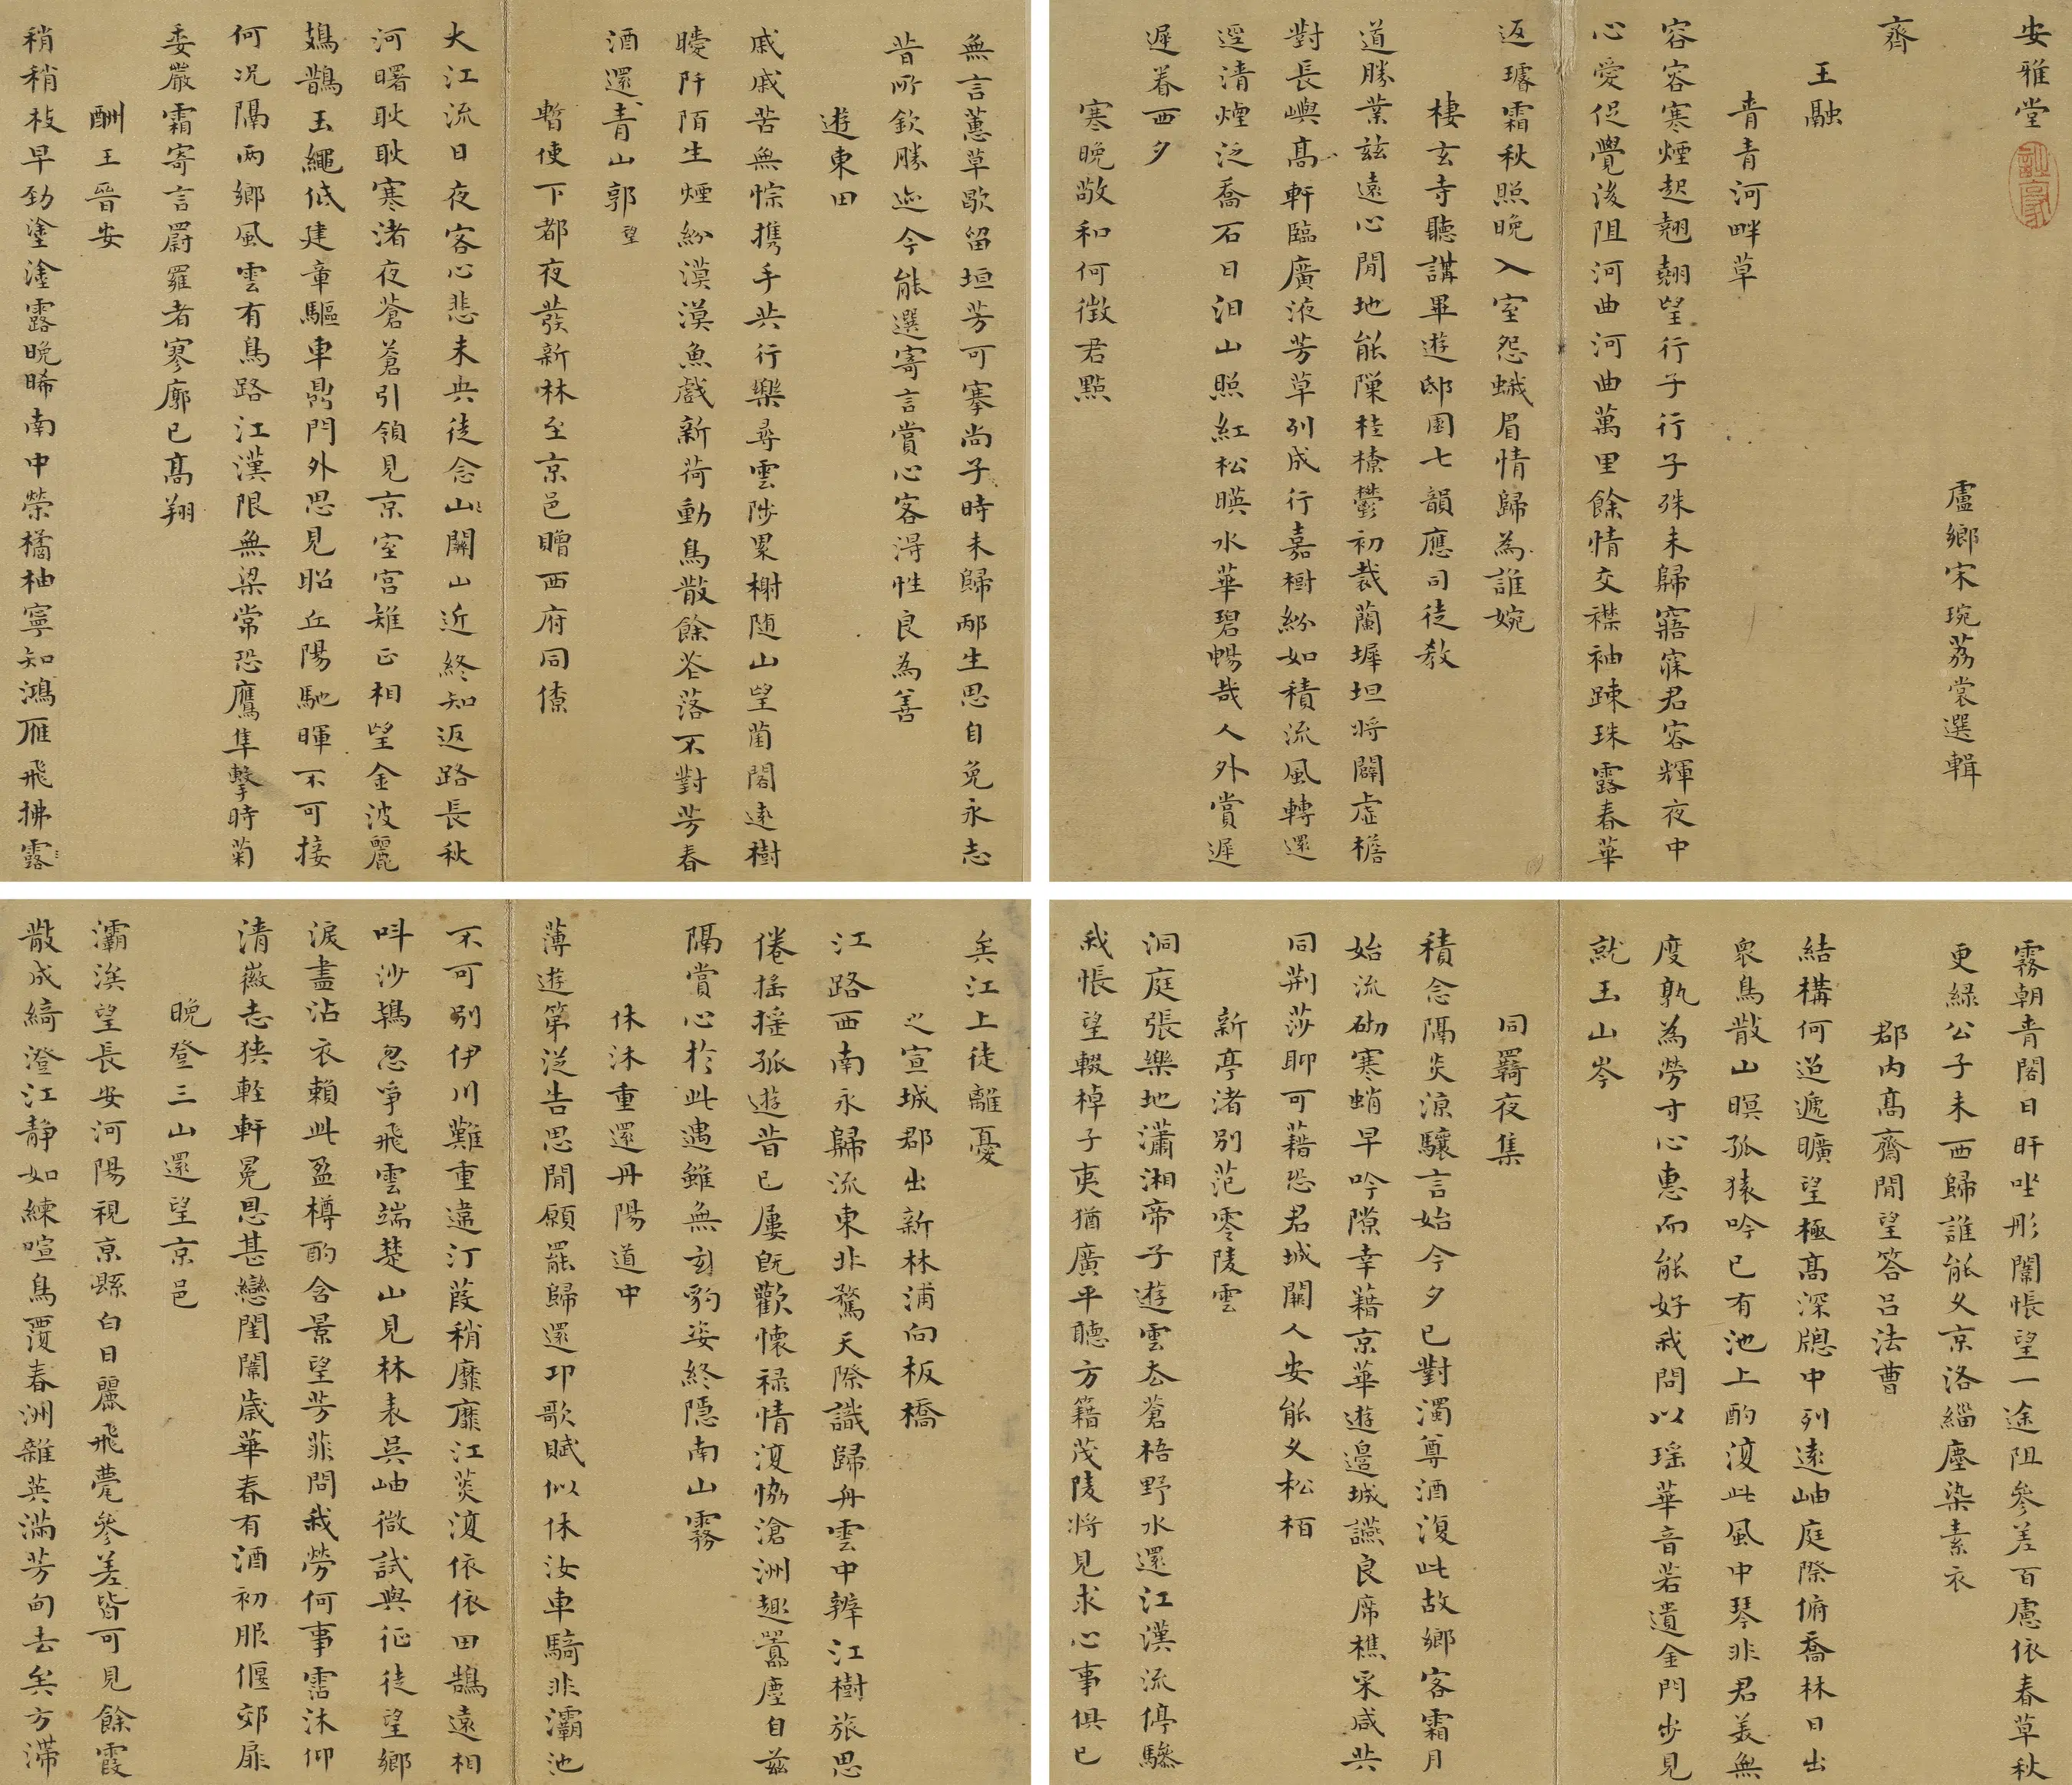 安雅堂
盧鄉宋琬荔裳選輯
齊
王融
青青河畔草
容容寒煙起翹翹望行子行子殊未歸寤寐君容輝夜中
心愛促覺後阻河曲河曲萬里餘情交襟袖疎珠露春華
返璿霜秋照晚入室怨蛾眉情歸為誰婉
棲玄寺聽講畢遊邸園七韻應司徒教
道勝業茲遠心閒地能隟桂橑鬱初裁蘭墀坦將闢虛檐
對長嶼高軒臨廣液芳草列成行嘉樹紛如積流風轉還
逕清煙泛喬石日汨山照紅松暎水華碧暢哉人外賞遲
遲眷西夕
寒晚敬和何徵君點
無言蕙草歇留垣芳可搴尚子時未歸邴生思自免永志
昔所欽勝迹今能選寄言賞心客得性良為善
遊東田
戚戚苦無悰攜手共行樂尋雲陟累榭随山望菌閣遠樹
曖阡陌生煙紛漠漠魚戲新荷動鳥散餘花落不對芳春
酒還青山郭望
暫使下都夜發新林至京邑贈西府同僚
大江流日夜客心悲未央徒念山關山近終知返路長秋
河曙耿耿寒渚夜蒼蒼引領見京室宮雉正相望金波麗
鳷鵲玉繩低建章驅車鼎門外思見昭丘陽馳暉不可接
何況隔兩鄉風雲有鳥路江漢限無梁常恐鷹隼擊時菊
委嚴霜寄言罻羅者寥廓已高翔
酬王晉安
稍稍枝早勁塗塗露晚晞南中榮橘柚寧知鴻雁飛拂露
霧朝青閣日旰坐彤闈悵望一途阻參差百慮依春草秋
更綠公子未西歸誰能久京洛緇塵染素衣
郡內高齋閒望答呂法曹
結構何迢遞曠望極高深牎中列遠岫庭際俯喬林日出
衆鳥散山暝孤猿吟已有池上酌復此風中琴非君美無
度孰為勞寸心惠而能好我問以瑤華音若遺金門步見
就玉山岑
同羈夜集
積念隔炎涼驤言始今夕已對濁尊酒復此故鄉客霜月
始流砌寒蛸早吟隙幸藉京華遊邊城讌良席樵采咸共
同荊莎聊可藉恐君城闕人安能久松栢
新亭渚別范零陵雲
洞庭張樂地瀟湘帝子遊雲去蒼梧野水還江漢流停驂
我悵望輟棹子夷猶廣平聽方籍茂陵將見求心事俱已
矣江上徒離憂
之宣城郡出新林浦向板橋
江路西南永歸流東北騖天際識歸舟雲中辨江樹旅思
倦搖搖孤遊昔已屢既歡懷祿情復協滄洲趣囂塵自茲
隔賞心於此遇雖無玄豹姿終隱南山霧
休沐重還丹陽道中
薄遊第從告思閒願罷歸還卭歌賦似休汝車騎非灞池
不可別伊川難重違汀葭稍靡靡江菼復依依田鵠遠相
呌沙鴇忽爭飛雲端楚山見林表吳岫微試與征徒望鄉
淚盡沾衣賴此盈樽酌含景望芳菲問我勞何事霑沐仰
清徽志狹輕軒冕恩甚戀閨闈歲華春有酒初服偃郊扉
晚登三山還望京邑
灞涘望長安河陽視京縣白日麗飛甍參差皆可見餘霞
散成綺澄江靜如練喧鳥覆春洲雜英滿芳甸去矣方滯